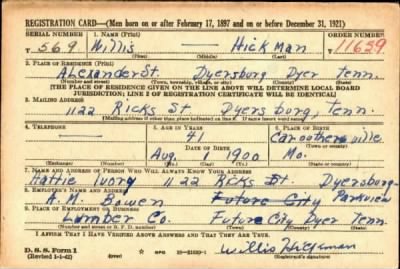 REGISTRATION CARD—(Men born on or after February 17, 1897 and on or before December 31, 1921)
SERIAL NUMBER 1. NAME (Print) ORDER NUMBER
T 569 Willis — Hickman 11629
(First) (Middle) (Last)
2. PLACE OF RESIDENCE (Print)
Alexander St. Dyersburg Dyer Tenn.
(Number and street) (Town, township, village, or city) (County) (State)
[THE PLACE OF RESIDENCE GIVEN ON THE LINE ABOVE WILL DETERMINE LOCAL BOARD
JURISDICTION; LINE 2 OF REGISTRATION CERTIFICATE WILL BE IDENTICAL]
3. MAILING ADDRESS
1122 Ricks St Dyersburg, Tenn.
[Mailing address if other than place indicated on line 2. If same insert word same]
4. TELEPHONE 5. AGE IN YEARS 6. PLACE OF BIRTH
— 41 Caroothersville
DATE OF BIRTH (Town or county)
Aug. 1900 Mo.
(Exchange) (Number) (Mo.) (Day) (Yr.) (State or country)
7. NAME AND ADDRESS OF PERSON WHO WILL ALWAYS KNOW YOUR ADDRESS
Hattie Ivory 1122 Ricks St. Dyersburg
8. EMPLOYER'S NAME AND ADDRESS
A. M. Bowen Future City Parkview
9. PLACE OF EMPLOYMENT OR BUSINESS
Lumber Co. Future City Dyer Tenn.
(Number and street or R. F. D. number) (Town) (County) (State)
I AFFIRM THAT I HAVE VERIFIED ABOVE ANSWERS AND THAT THEY ARE TRUE.
D. S. S. Form 1
(Revised 1-1-42) (over) GPO 16—21630-1 Willis Hickman
(Registrant's signature)